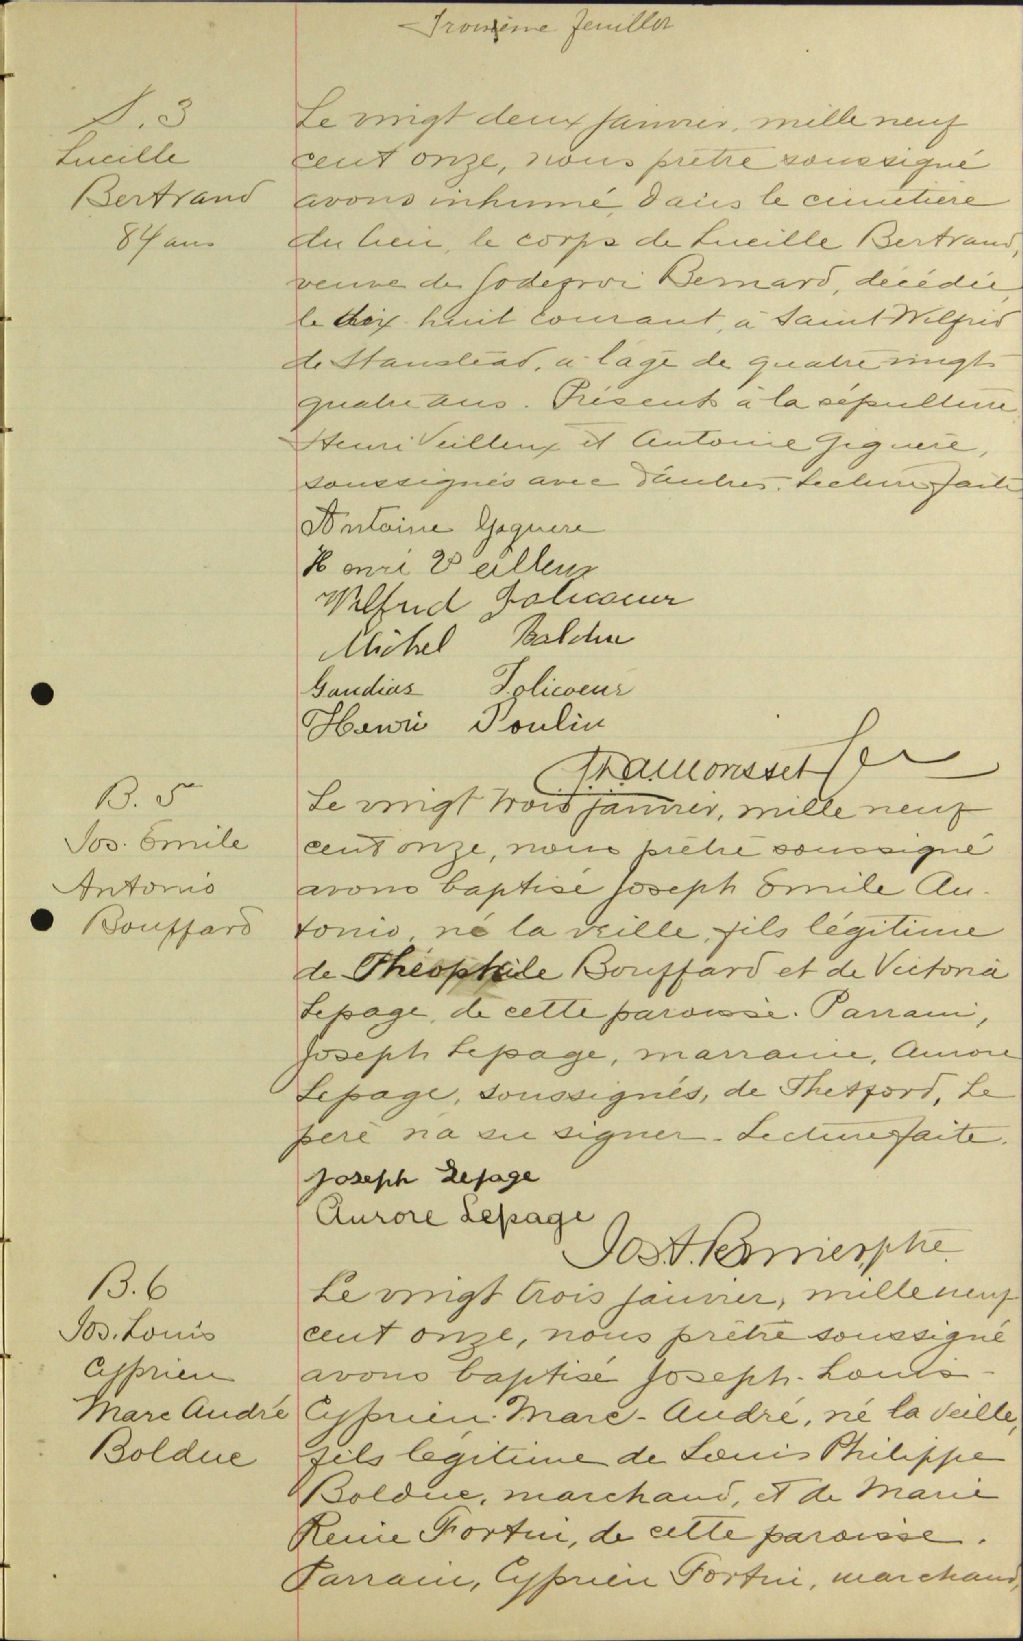 Troisième feuillet
S. 3
Lucille
Bertrand
84 ans
Le vingt deux janvier, mille neuf
cent onze, nous prêtre soussigné
avons inhumé, dans le cimetière
du lieu, le corps de Lucille Bertrand,
veuve de Godefroi Bernard, décédée
le dix huit courant, à Saint Wilfrid
de Stanstead, à l'âge de quatre vingt
quatre ans. Présents à la sépulture
Henri Veilleux et Antoine Giguère,
soussignés avec d'autres. Lecture faite
Antoine Giguere
Henri Veilleux
Wilfrid Jolicoeur
Michel Bolduc
Gaudias Jolicoeur
Henri Poulin
B. 5
Jos. Emile
Antonio
Bouffard
Le vingt trois janvier, mille neuf
cent onze, nous prêtre soussigné
avons baptisé Joseph Emile An-
tonio, né la veille, fils légitime
de Théophile Bouffard et de Victoria
Lepage, de cette paroisse. Parrain,
Joseph Lepage, marraine, Aurore
Lepage, soussignés, de Thetford, Le
père n'a su signer. Lecture faite.
Joseph Lepage
Aurore Lepage
Jos. A. Bernier, ptre
B. 6
Jos. Louis
Cyprien
Marc André
Bolduc
Le vingt trois janvier, mille neuf
cent onze, nous prêtre soussigné
avons baptisé Joseph-Louis-
Cyprien-Marc-André, né la veille,
fils légitime de Louis Philippe
Bolduc, marchand, et de Marie
Reine Fortin, de cette paroisse.
Parrain, Cyprien Fortin, marchand,